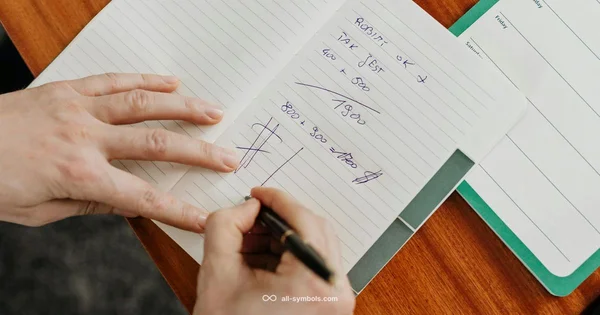 ROBIMY OK
TAK JEST
400 + 500
1900
800 + 900 = 1700 $
Friday
Friday
Saturday
all-symbols.com